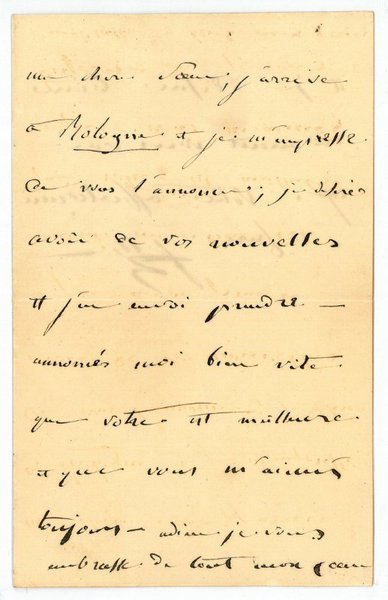 ma chere Sœur, j'arrive
a Bologne et je m'empresse
de vous l'annoncer; je desire
avoir de vos nouvelles
et j'en envoi prendre —
annoncés moi bien vite
que votre est meilleure
et que vous m'aimés
toujours — adieu je vous
embrasse de tout mon cœur